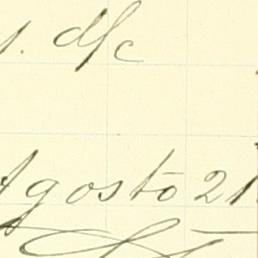 d/c
Agosto 21